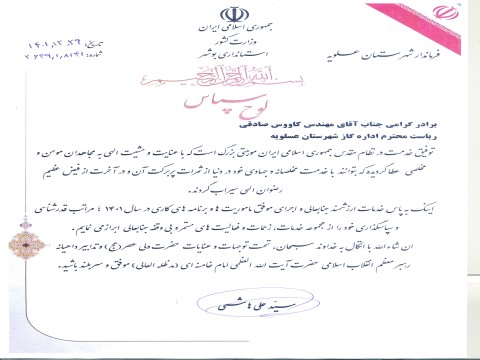 جمهوری اسلامی ایران
وزارت کشور
استانداری بوشهر
تاریخ: ۱۴۰۱,۱۲,۲۹
شماره: ۲۲۳۹,۱,۸۱۴۱
فرماندار شهرستان عسلویه
بسم الله الرحمن الرحیم
لوح سپاس
برادر گرامی جناب آقای مهندس کاووس صادقی
ریاست محترم اداره گاز شهرستان عسلویه
توفیق خدمت در نظام مقدس جمهوری اسلامی ایران موهبتی بزرگ است که با عنایت و مشیت الهی به مجاهدان مومن و
مخلصی عطا گردیده که بتوانند با خدمت مخلصانه و جهادی خود در دنیا از ثمرات پر برکت آن و در آخرت از فیض عظیم
رضوان الهی سیراب گردند.
اینک به پاس خدمات ارزشمند جنابعالی و اجرای موفق ماموریت ها و برنامه های کاری در سال ۱۴۰۱ مراتب قدرشناسی
و سپاسگذاری خود را از مجموعه خدمات، زحمات و فعالیت های مستمر و بی وقفه جنابعالی ابراز می نمایم.
ان شاءالله با اتکال به خداوند سبحان، تحت توجهات و عنایات حضرت ولی عصر (عج) و تدابیر داهیانه
رهبر معظم انقلاب اسلامی حضرت آیت الله العظمی امام خامنه ای (مدظله العالی) موفق و سربلند باشید.
سید علی هاشمی